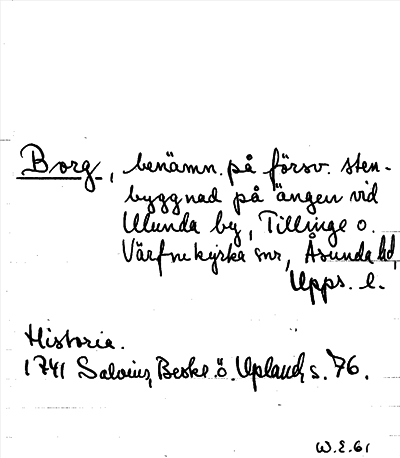 Borg, benämn. på försv. sten-
byggnad på ängen vid
Ulunda by, Tillinge o.
Värfrukyrka snr, Åsunda hd,
Upps. l.
Historia.
1741 Salvius, Beskr. ö. Upland, s. 76.
W.E. 61